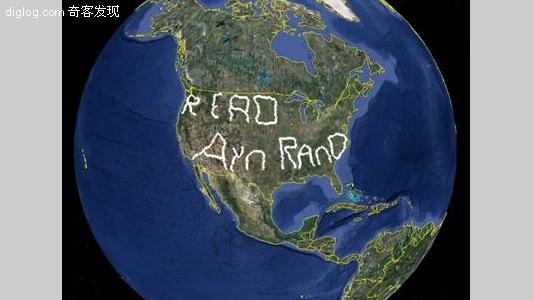 diglog.com 奇客发现
READ
Ayn Rand